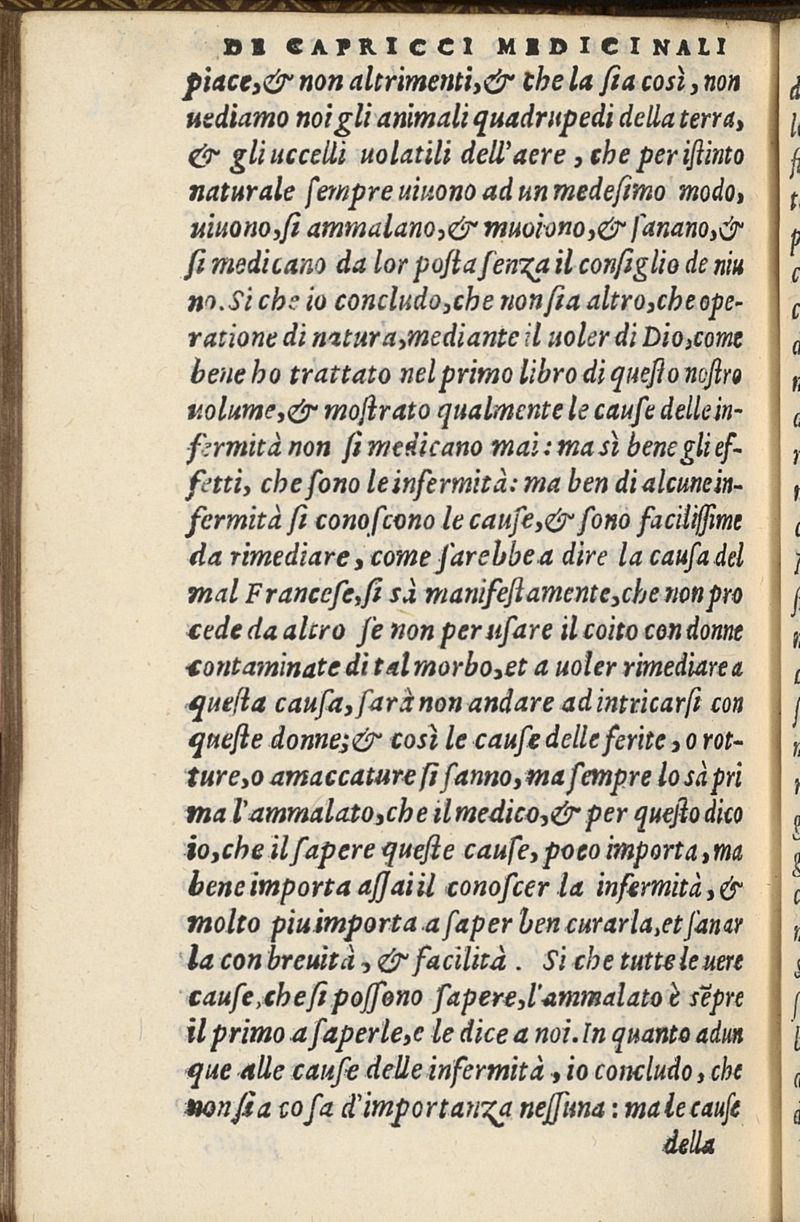 DE CAPRICCI MEDICINALI
piace,& non altrimenti,& che la ſia così, non
uediamo noi gli animali quadrupedi della terra,
& gli uccelli uolatili dell'aere, che per iſtinto
naturale ſempre uiuono ad un medeſimo modo,
uiuono,ſi ammalano,& muoiono,& ſanano,&
ſi medicano da lor poſta ſenza il conſiglio de niu
no. Si che io concludo,che non ſia altro,che ope-
ratione di natura,mediante il uoler di Dio,come
bene ho trattato nel primo libro di queſto noſtro
uolume,& moſtrato qualmente le cauſe delle in-
fermità non ſi medicano mai: ma sì bene gli ef-
fetti, che ſono le infermità: ma ben di alcune in-
fermità ſi conoſcono le cauſe,& ſono faciliſſime
da rimediare, come ſarebbe a dire la cauſa del
mal Franceſe,ſi sà manifeſtamente,che non pro
cede da altro ſe non per uſare il coito con donne
contaminate di tal morbo,et a uoler rimediare a
queſta cauſa, ſarà non andare ad intricarſi con
queſte donne;& così le cauſe delle ferite, o rot-
ture,o amaccature ſi ſanno, ma ſempre lo sà pri
ma l'ammalato,che il medico,& per queſto dico
io,che il ſapere queſte cauſe, poco importa, ma
bene importa aſſai il conoſcer la infermità, &
molto piu importa a ſaper ben curarla,et ſanar
la con breuità, & facilità. Si che tutte le uere
cauſe,che ſi poſſono ſapere,l'ammalato è sẽpre
il primo a ſaperle,e le dice a noi. In quanto adun
que alle cauſe delle infermità, io concludo, che
non ſia coſa d'importanza neſſuna: ma le cauſe
della